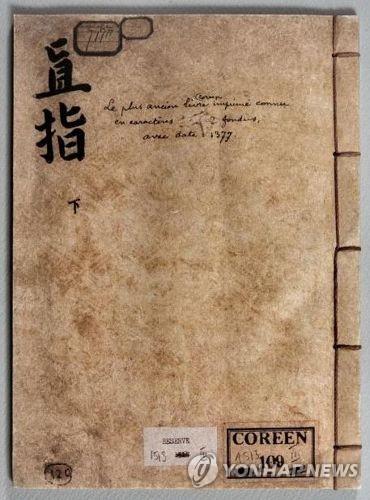 直指
下
Coréen
Le plus ancien livre imprimé connu
en caractères fondus,
avec date : 1377.
RESERVE
1513 III
COREEN
1513 III
109
129
YONHAPNEWS